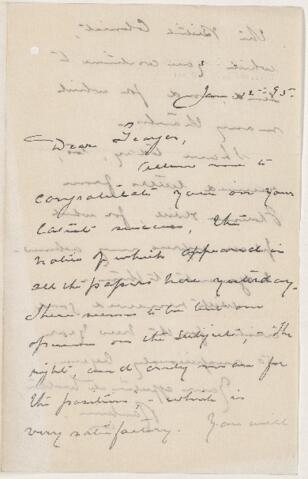 Jan 2-95.
Dear George,
Allow me to
congratulate you on your
latest success, the
notice of which appeared in
all the papers here yesterday.
There seems to be but one
opinion on the subject, "The
right, and only man for
the position" - which is
very satisfactory. You will